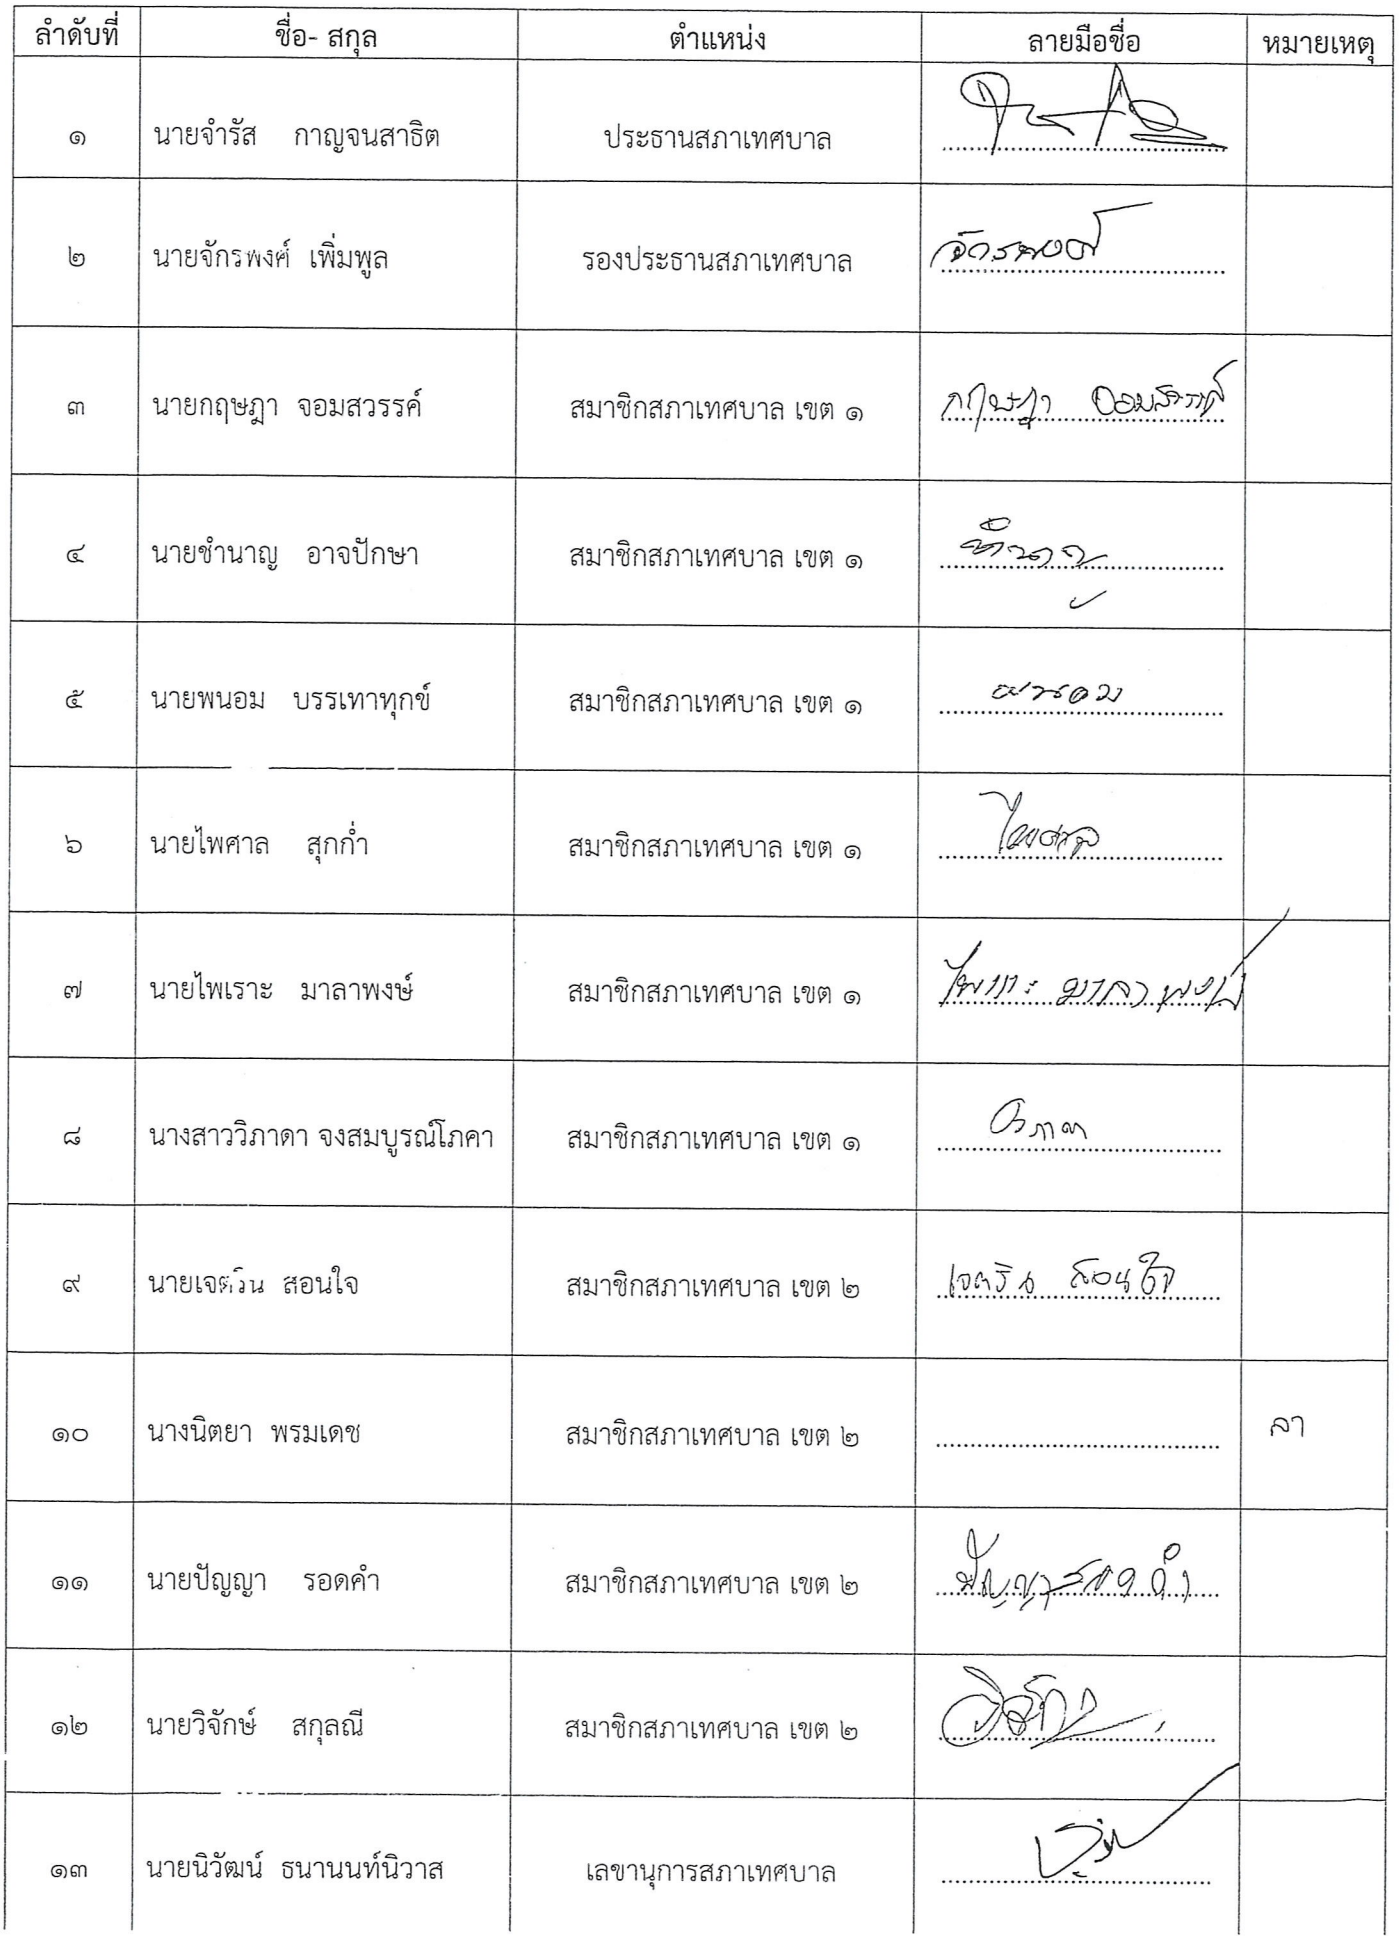 ลำดับที่ ชื่อ- สกุล ตำแหน่ง ลายมือชื่อ หมายเหตุ
๑ นายจำรัส กาญจนสาธิต ประธานสภาเทศบาล
๒ นายจักรพงศ์ เพิ่มพูล รองประธานสภาเทศบาล จักรพงศ์
๓ นายกฤษฎา จอมสวรรค์ สมาชิกสภาเทศบาล เขต ๑ กฤษฎา จอมสวรรค์
๔ นายชำนาญ อาจปักษา สมาชิกสภาเทศบาล เขต ๑ ชำนาญ
๕ นายพนอม บรรเทาทุกข์ สมาชิกสภาเทศบาล เขต ๑ พนอม
๖ นายไพศาล สุกก่ำ สมาชิกสภาเทศบาล เขต ๑ ไพศาล
๗ นายไพเราะ มาลาพงษ์ สมาชิกสภาเทศบาล เขต ๑ ไพเราะ มาลาพงษ์
๘ นางสาววิภาดา จงสมบูรณ์โภคา สมาชิกสภาเทศบาล เขต ๑ วิภาดา
๙ นายเจตริน สอนใจ สมาชิกสภาเทศบาล เขต ๒ เจตริน สอนใจ
๑๐ นางนิตยา พรมเดช สมาชิกสภาเทศบาล เขต ๒ ลา
๑๑ นายปัญญา รอดคำ สมาชิกสภาเทศบาล เขต ๒ ปัญญา รอดคำ
๑๒ นายวิจักษ์ สกุลณี สมาชิกสภาเทศบาล เขต ๒ วิจักษ์
๑๓ นายนิวัฒน์ ธนานนท์นิวาส เลขานุการสภาเทศบาล